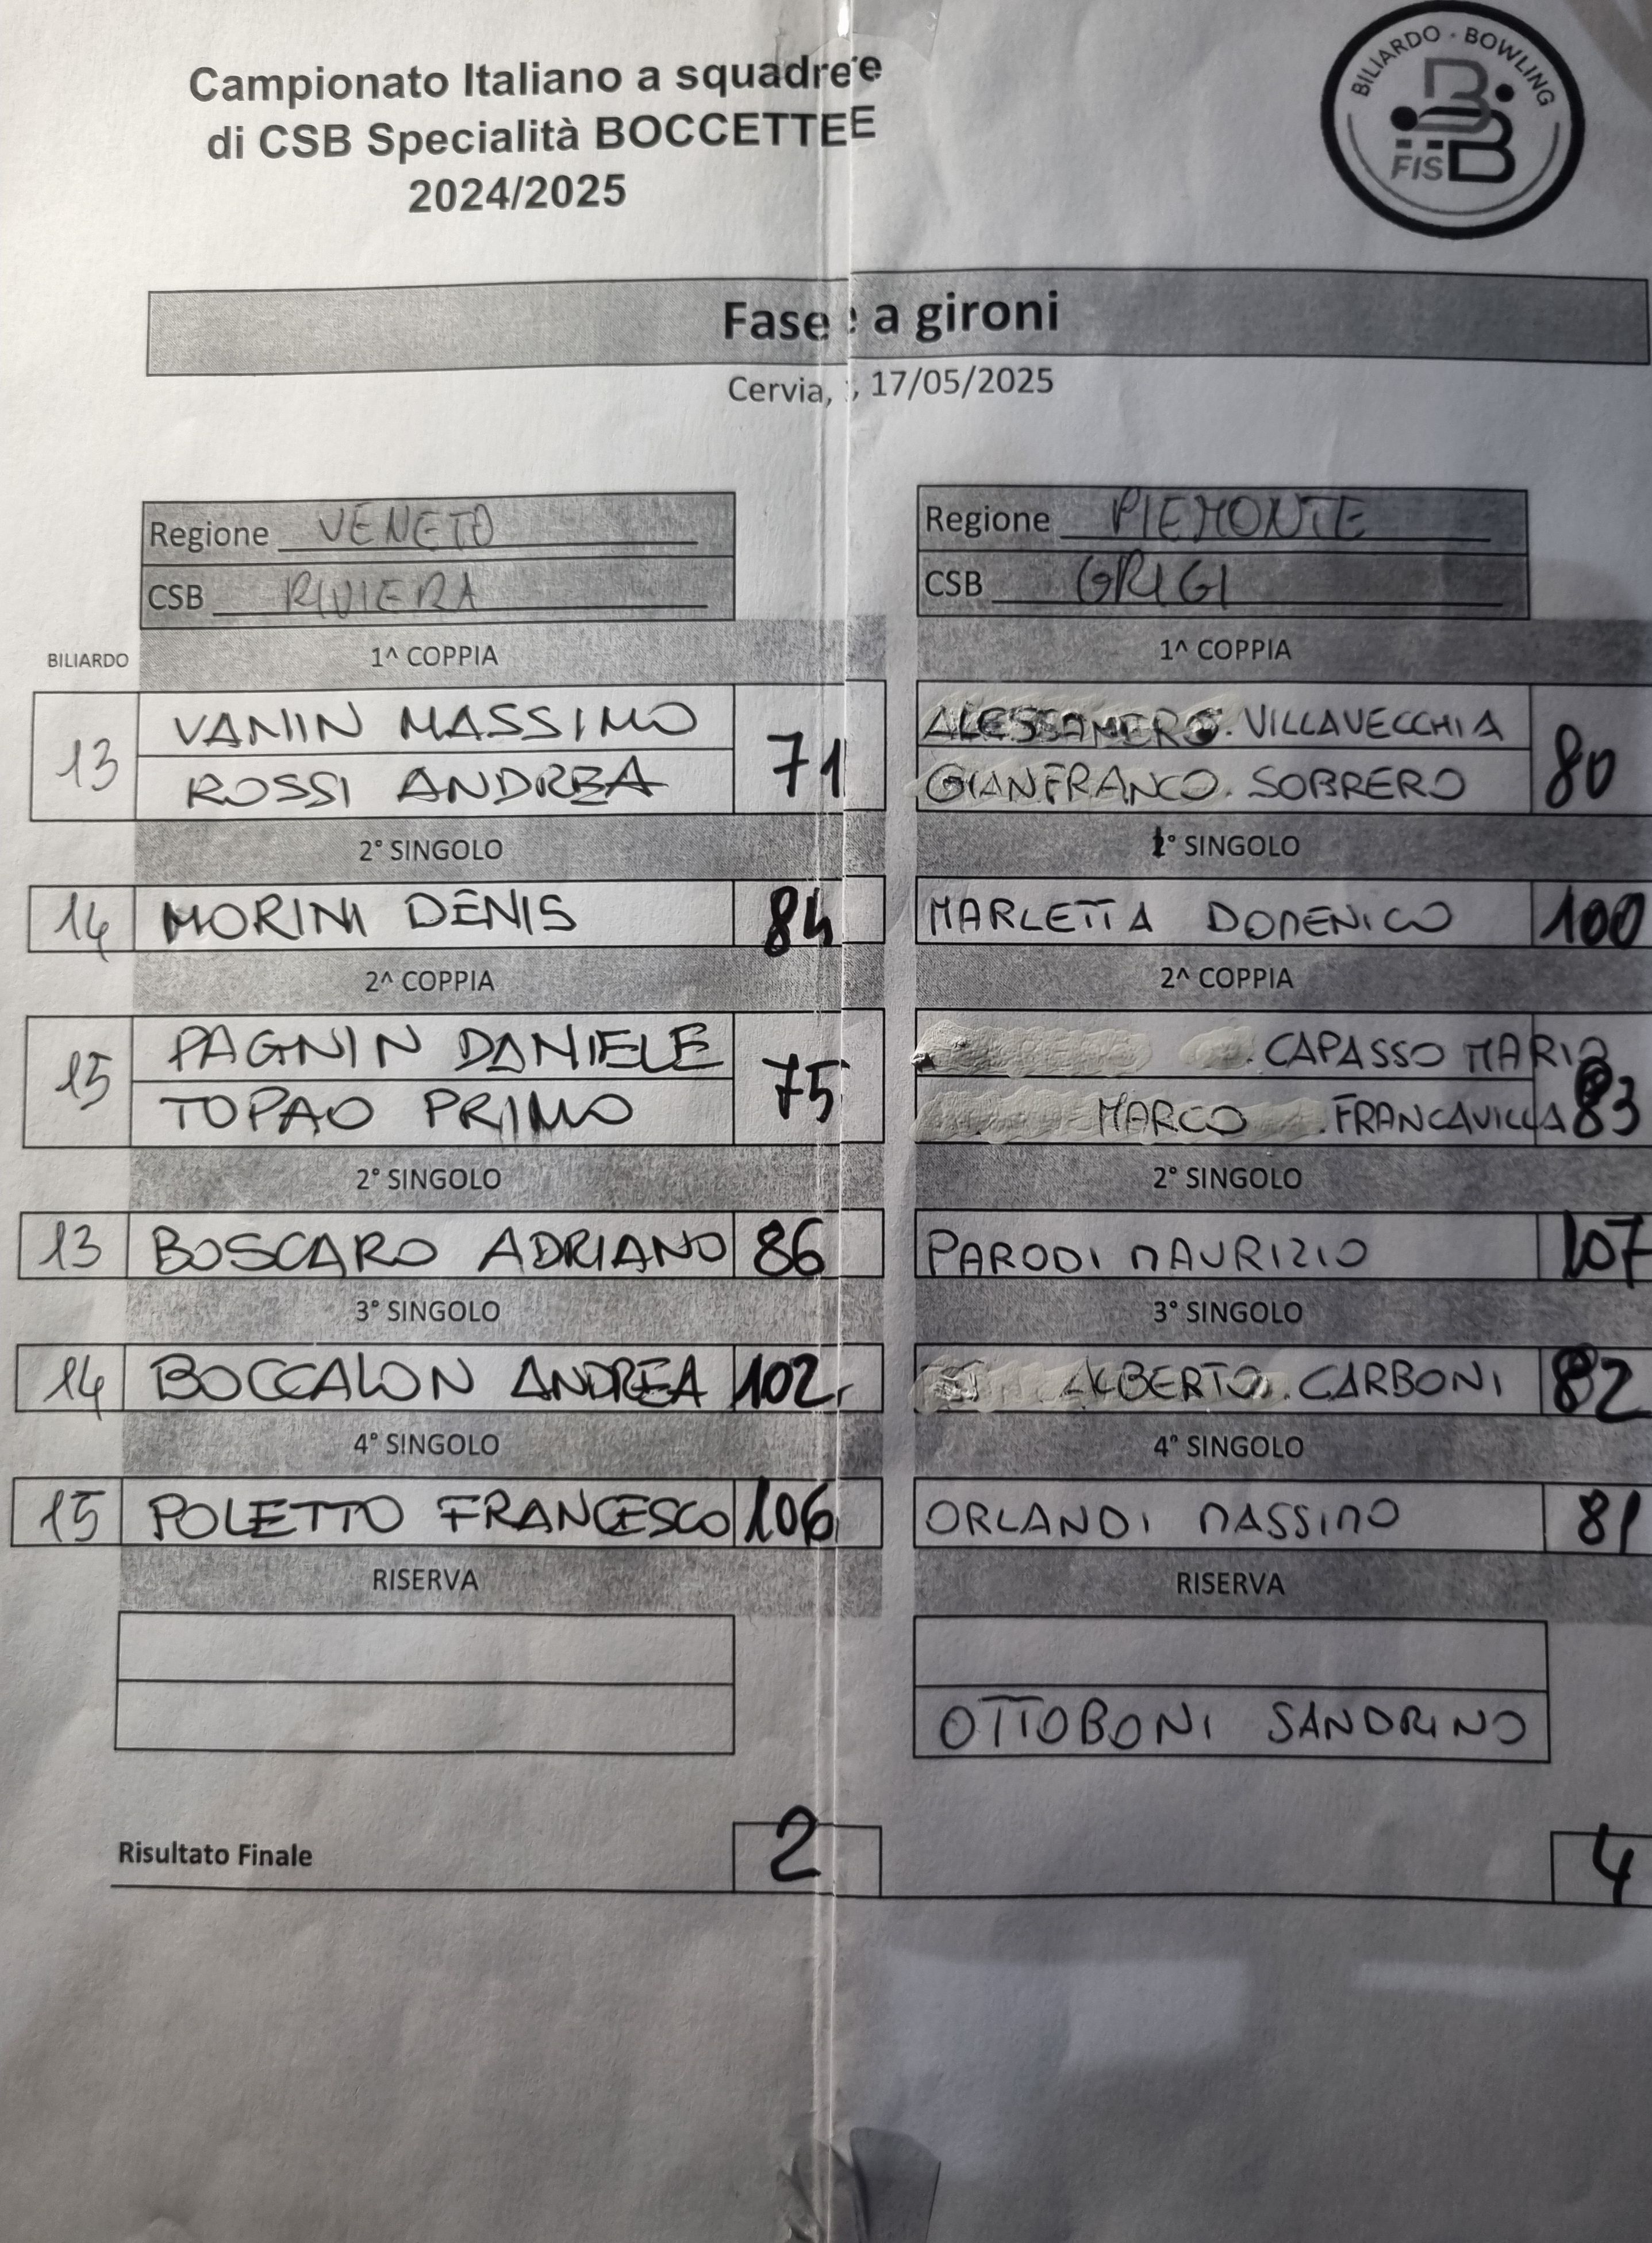 Campionato Italiano a squadre e
di CSB Specialità BOCCETTE E
2024/2025
BILIARDO · BOWLING
FISBB
Fase a gironi
Cervia, 17/05/2025
Regione VENETO
CSB RIVIERA
Regione PIEMONTE
CSB GRIGI
BILIARDO 1^ COPPIA 1^ COPPIA
13 VANIN MASSIMO 71 VILLAVECCHIA 80
ROSSI ANDREA GIANFRANCO. SOBRERO
2° SINGOLO 2° SINGOLO
14 MORINI DENIS 84 MARLETTA DOMENICO 100
2^ COPPIA 2^ COPPIA
15 PAGNIN DANIELE 75 . CAPASSO MARIO 83
TOPAO PRIMO MARCO . FRANCAVILLA
2° SINGOLO 2° SINGOLO
13 BOSCARO ADRIANO 86 PARODI MAURIZIO 107
3° SINGOLO 3° SINGOLO
14 BOCCALON ANDREA 102 ALBERTO. CARBONI 82
4° SINGOLO 4° SINGOLO
15 POLETTO FRANCESCO 106 ORLANDI MASSIMO 81
RISERVA RISERVA
OTTOBONI SANDRINO
Risultato Finale 2 4